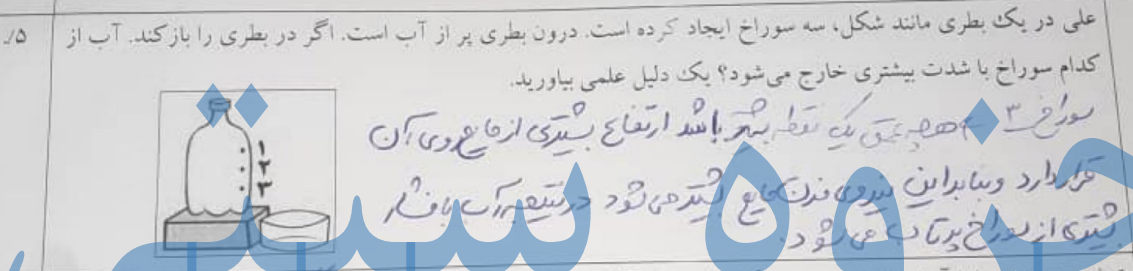 علی در یک بطری مانند شکل، سه سوراخ ایجاد کرده است. درون بطری پر از آب است. اگر در بطری را باز کند. آب از
۵/.
کدام سوراخ با شدت بیشتری خارج می‌شود؟ یک دلیل علمی بیاورید.
سوراخ ۳ هرچه عمق یک نقطه بیشتر باشد ارتفاع بیشتری از مایع روی آن
قرار دارد و بنابراین نیروی وزن مایع بیشتر می شود در نتیجه آب با فشار
بیشتری از سوراخ پرتاب می شود.
۱
۲
۳